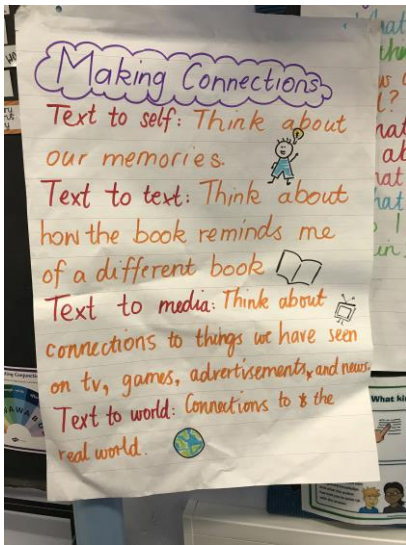 Making Connections
Text to self: Think about
our memories.
Text to text: Think about
how the book reminds me
of a different book
Text to media: Think about
connections to things we have seen
on tv, games, advertisements, and news
Text to world: Connections to the
real world.
What kin